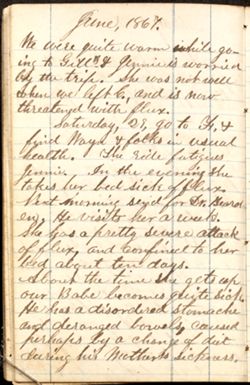 June, 1867.
We were quite warm while go-
ing to G & Jennie is worried
by the trip. She was not well
when we left C, and is now
threatened with flux.
Saturday, 29, go to H, &
find Nay's & folks in usual
health. The ride fatigues
Jennie. In the evening she
takes her bed sick of flux.
Next morning send for Dr. Beard
en. He visits her a week.
She has a pretty severe attack
of flux, and confined to her
bed about ten days.
About the time she gets up
our Babe becomes quite sick
He has a disordered stomache
and deranged bowels, caused
perhaps by a change of diet
during his Mothers sickness.